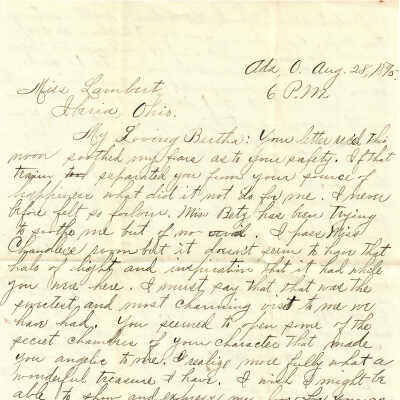 Ada, O. Aug. 28, 1895.
6 P.M.
Miss Lambert,
Iberia, Ohio.
My Loving Bertha: Your letter rec'd this
noon soothed my fears as to your safety. If that
train separated you from your source of
happiness what did it not do for me. I never
before felt so forlorn. Miss Betz has been trying
to soothe me but of no avail. I pass Miss
Chandler's room but it doesn't seem to have that
halo of light and inspiration that it had while
you were here. I must say that was the
sweetest and most charming visit to me we
have had. You seemed to open some of the
secret chambers of your character that made
you angelic to me. I realize more fully what a
wonderful treasure I have. I wish I might be
able to show and express my